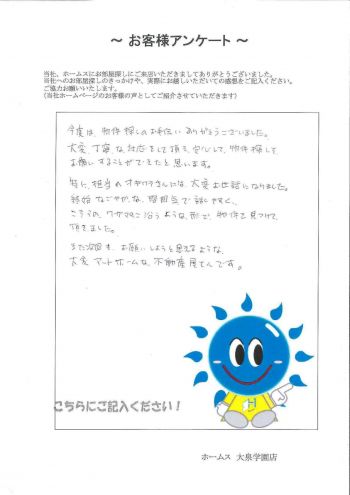 ～ お客様アンケート ～
当社、ホームスにお部屋探しにご来店いただきましてありがとうございました。
当社へのお部屋探しのきっかけや、実際にお越しいただいての感想をご記入ください。
ご協力お願いいたします。
(当社ホームページのお客様の声としてご紹介させていただきます)
今度は、物件探しのお手伝いありがとうございました。
大変、丁寧な対応をして頂き、安心して、物件探しを
お願いすることができたと思います。
特に、担当のオギワラさんには、大変お世話になりました。
終始 なごやかな、雰囲気で 話しやすく、
こちらの ワガママに沿うような形で、物件を見つけて
頂きました。
また次回も、お願いしようと思えるような、
大変 アットホームな、不動産屋さんです。
こちらにご記入ください!
ホームス 大泉学園店